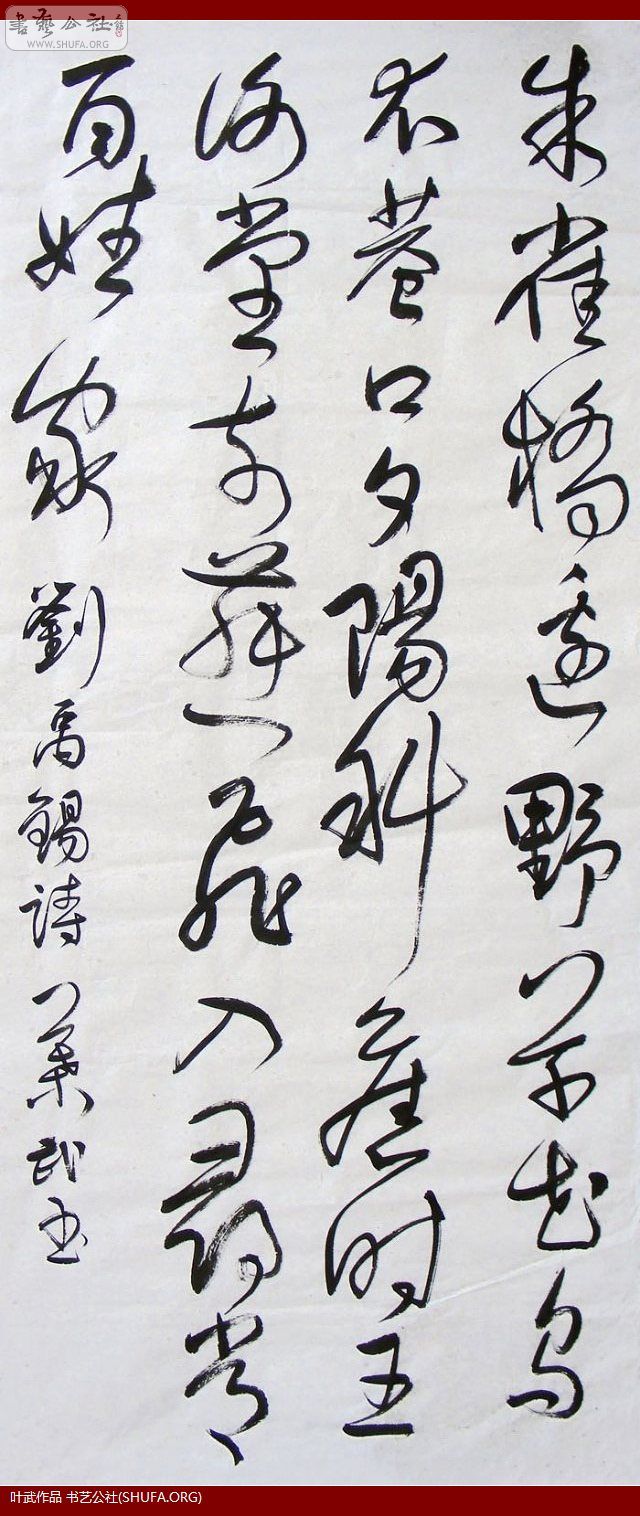 書藝公社
WWW.SHUFA.ORG
朱雀橋邊野草花烏
衣巷口夕陽斜舊時王
謝堂前燕飛入尋常
百姓家 劉禹錫詩 葉武书
叶武作品 书艺公社(SHUFA.ORG)